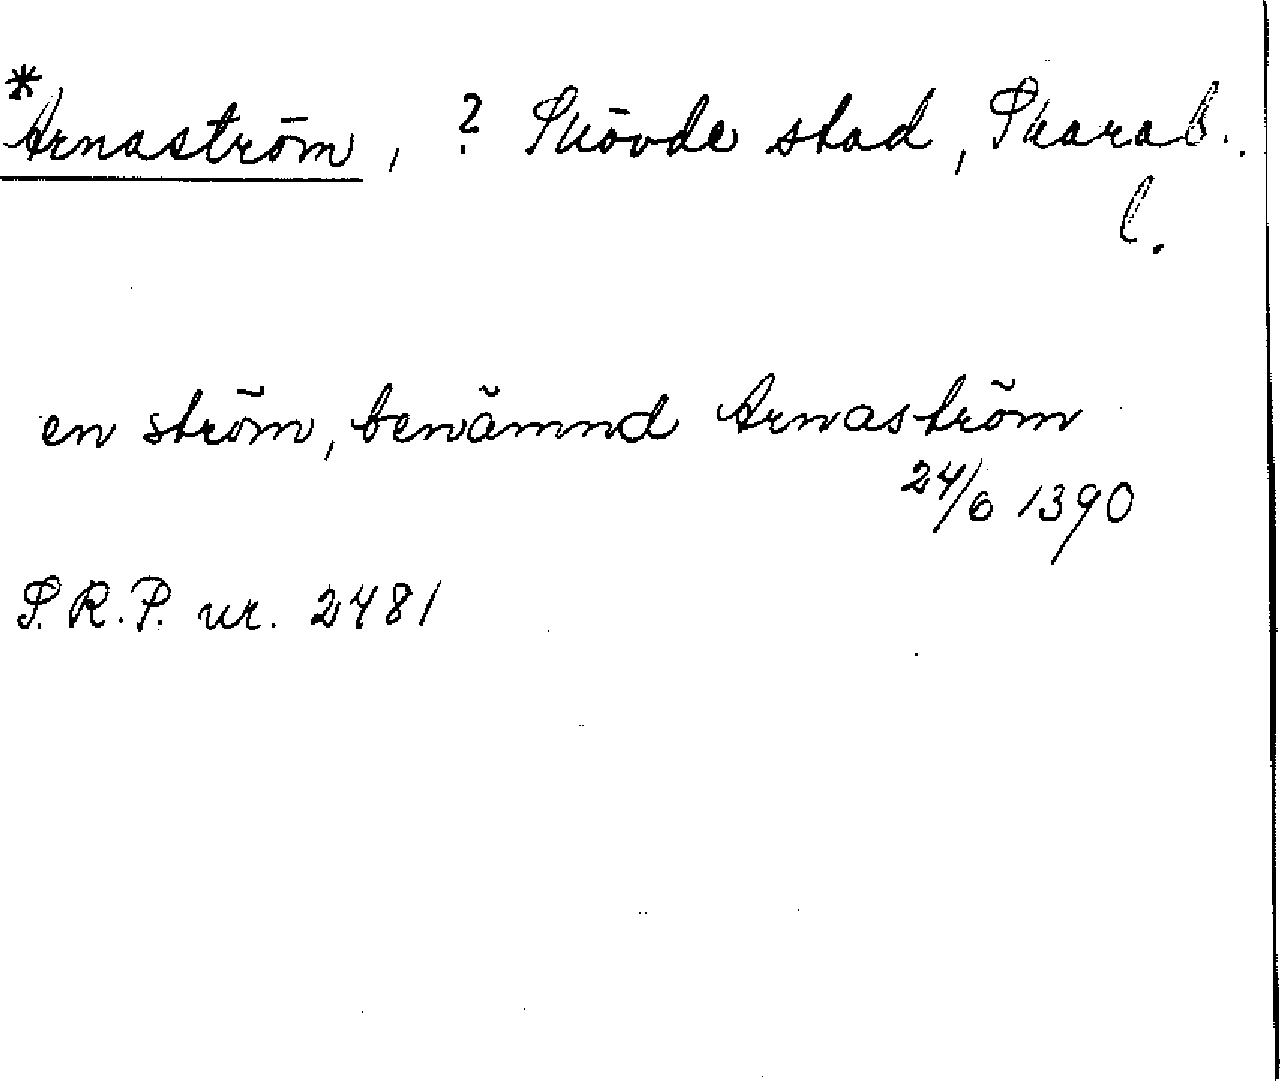 *Arnaström, ? Skövde stad, Skarab.
l.
en ström, benämnd Arnaström
24/6 1390
S.R.P. nr. 2481